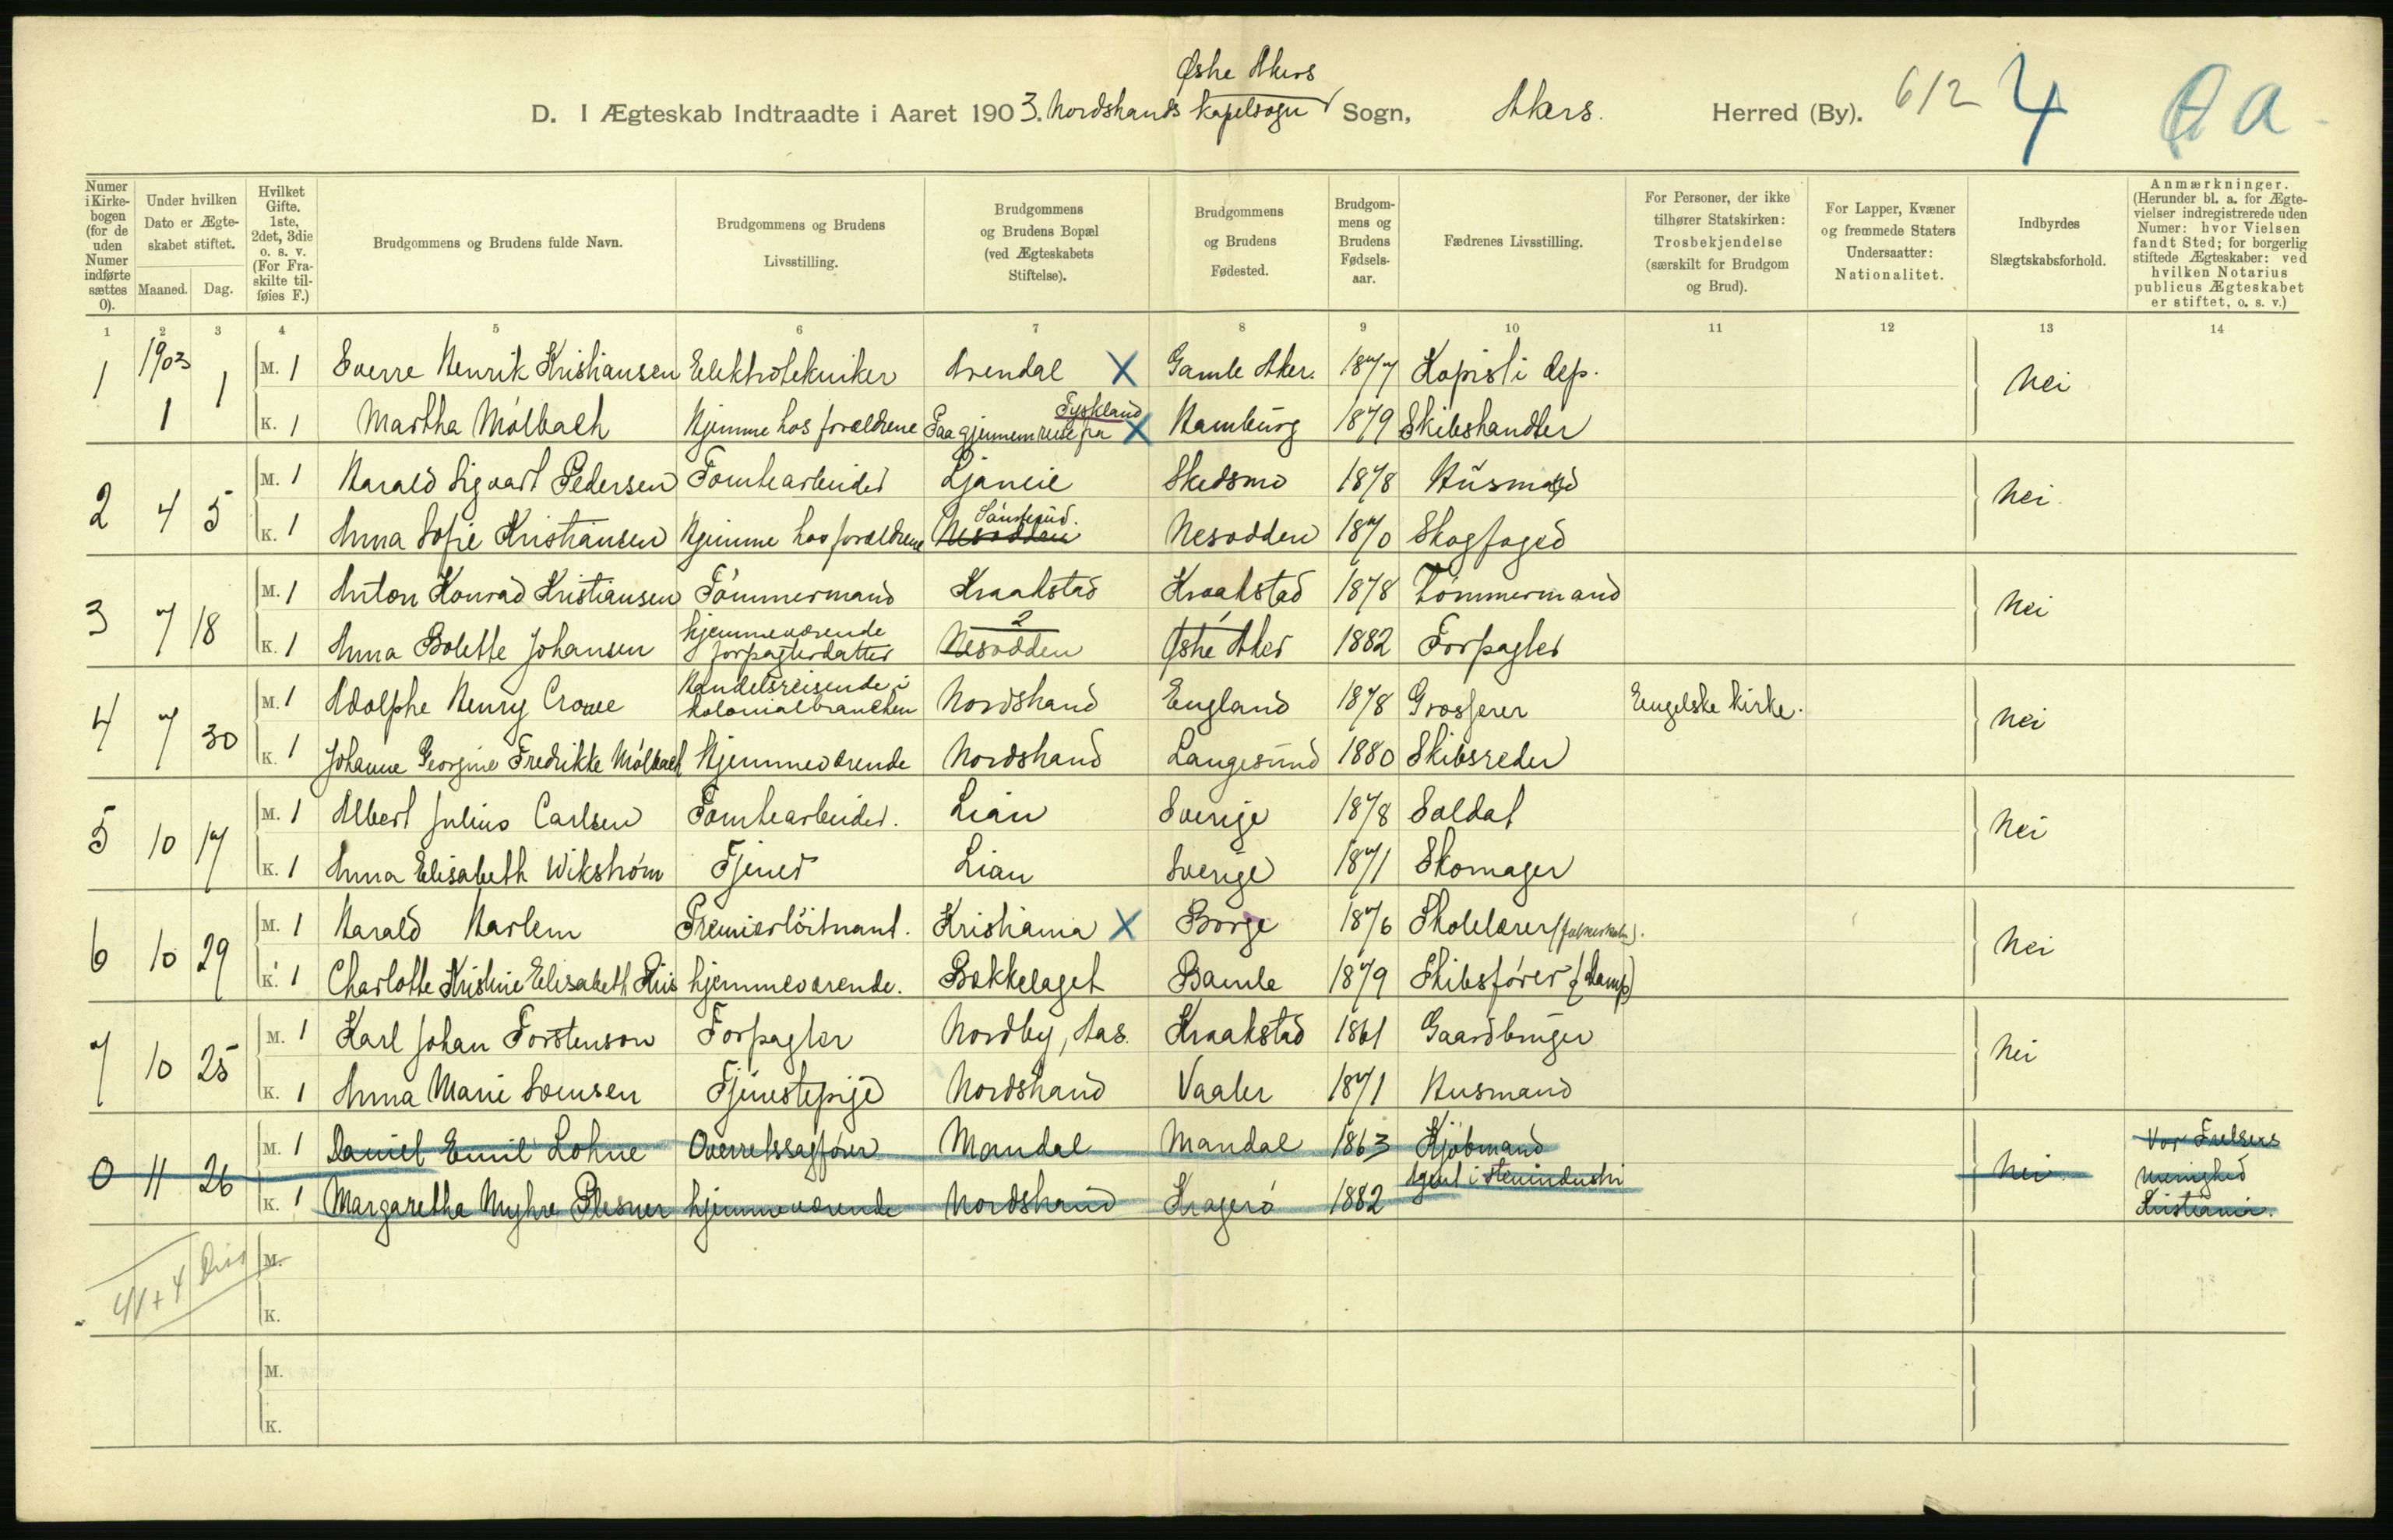 Østre Akers
D. I Ægteskab Indtraadte i Aaret 1903. Nordstrands Kapelsogn Sogn, Akers. Herred (By). 612 4 a
Numer i Kirkebogen (for de uden Numer indførte sættes 0).
Under hvilken Dato er Ægteskabet stiftet. Maaned. Dag.
Hvilket Gifte. 1ste, 2det, 3die o. s. v. (For Fraskilte tilføies F.)
Brudgommens og Brudens fulde Navn.
Brudgommens og Brudens Livsstilling.
Brudgommens og Brudens Bopæl (ved Ægteskabets Stiftelse).
Brudgommens og Brudens Fødested.
Brudgommens og Brudens Fødselsaar.
Fædrenes Livsstilling.
For Personer, der ikke tilhører Statskirken: Trosbekjendelse (særskilt for Brudgom og Brud).
For Lapper, Kvæner og fremmede Staters Undersaatter: Nationalitet.
Indbyrdes Slægtskabsforhold.
Anmærkninger. (Herunder bl. a. for Ægtevielser indregistrerede uden Numer: hvor Vielsen fandt Sted; for borgerlig stiftede Ægteskaber: ved hvilken Notarius publicus Ægteskabet er stiftet, o. s. v.)
1 2 3 4 5 6 7 8 9 10 11 12 13 14
1 1903 1 1 M. 1 Sverre Henrik Kristiansen Elektrotekniker Arendal X Gamle Aker. 1877 Kopist i dep. Nei
K. 1 Martha Mölbach Hjemme hos forældrene Paa gjennemreise fra Tyskland X Hamburg 1879 Skibshandler
2 4 5 M. 1 Harald Sigvart Pedersen Tomtearbeider Ljaneie Skedsmo 1878 Husmand Nei.
K. 1 Anna Sofie Kristiansen Hjemme hos forældrene Nesodden Nesodden 1870 Skogfoged
3 7 18 M. 1 Anton Konrad Kristiansen Tömmermand Kraakstad Kraakstad 1878 Tömmermand Nei
K. 1 Anna Bolette Johansen hjemmeværende forpagterdatter 2 Nesodden Østre Aker 1882 Forpagter
4 7 30 M. 1 Adolphe Henry Crowe Handelsreisende i kolonialbranchen Nordstrand England 1878 Grosserer Engelske kirke. Nei
K. 1 Johanne Georgine Fredrikke Mölbach Hjemmeværende Nordstrand Langesund 1880 Skibsreder
5 10 17 M. 1 Albert Julius Carlsen Tomtearbeider. Lian Sverige 1878 Soldat Nei
K. 1 Anna Elisabeth Wikström Tjener Lian Sverige 1871 Skomager
6 10 29 M. 1 Harald Harlem Premierlöitnant. Kristiania X Borge 1876 Skolelærer (folkeskolen). Nei
K. 1 Charlotte Kristine Elisabeth Riis hjemmeværende. Bækkelaget Bamle 1879 Skibsförer (damp)
7 10 25 M. 1 Karl Johan Torstenson Forpagter Nordby, Aas. Kraakstad 1861 Gaardbruger Nei
K. 1 Anna Marie Sørnsen Tjenestepige Nordstrand Vaaler 1871 Husmand
0 11 26 M. 1 Daniel Emil Lohne Overretssagförer Mandal Mandal 1863 Kjöbmand Nei. Vor Frelsers menighed Kristiania.
K. 1 Margaretha Myhre Plesner hjemmeværende Nordstrand Kragerö 1882 Agent i Stenindustri
M.
K.
M.
K.